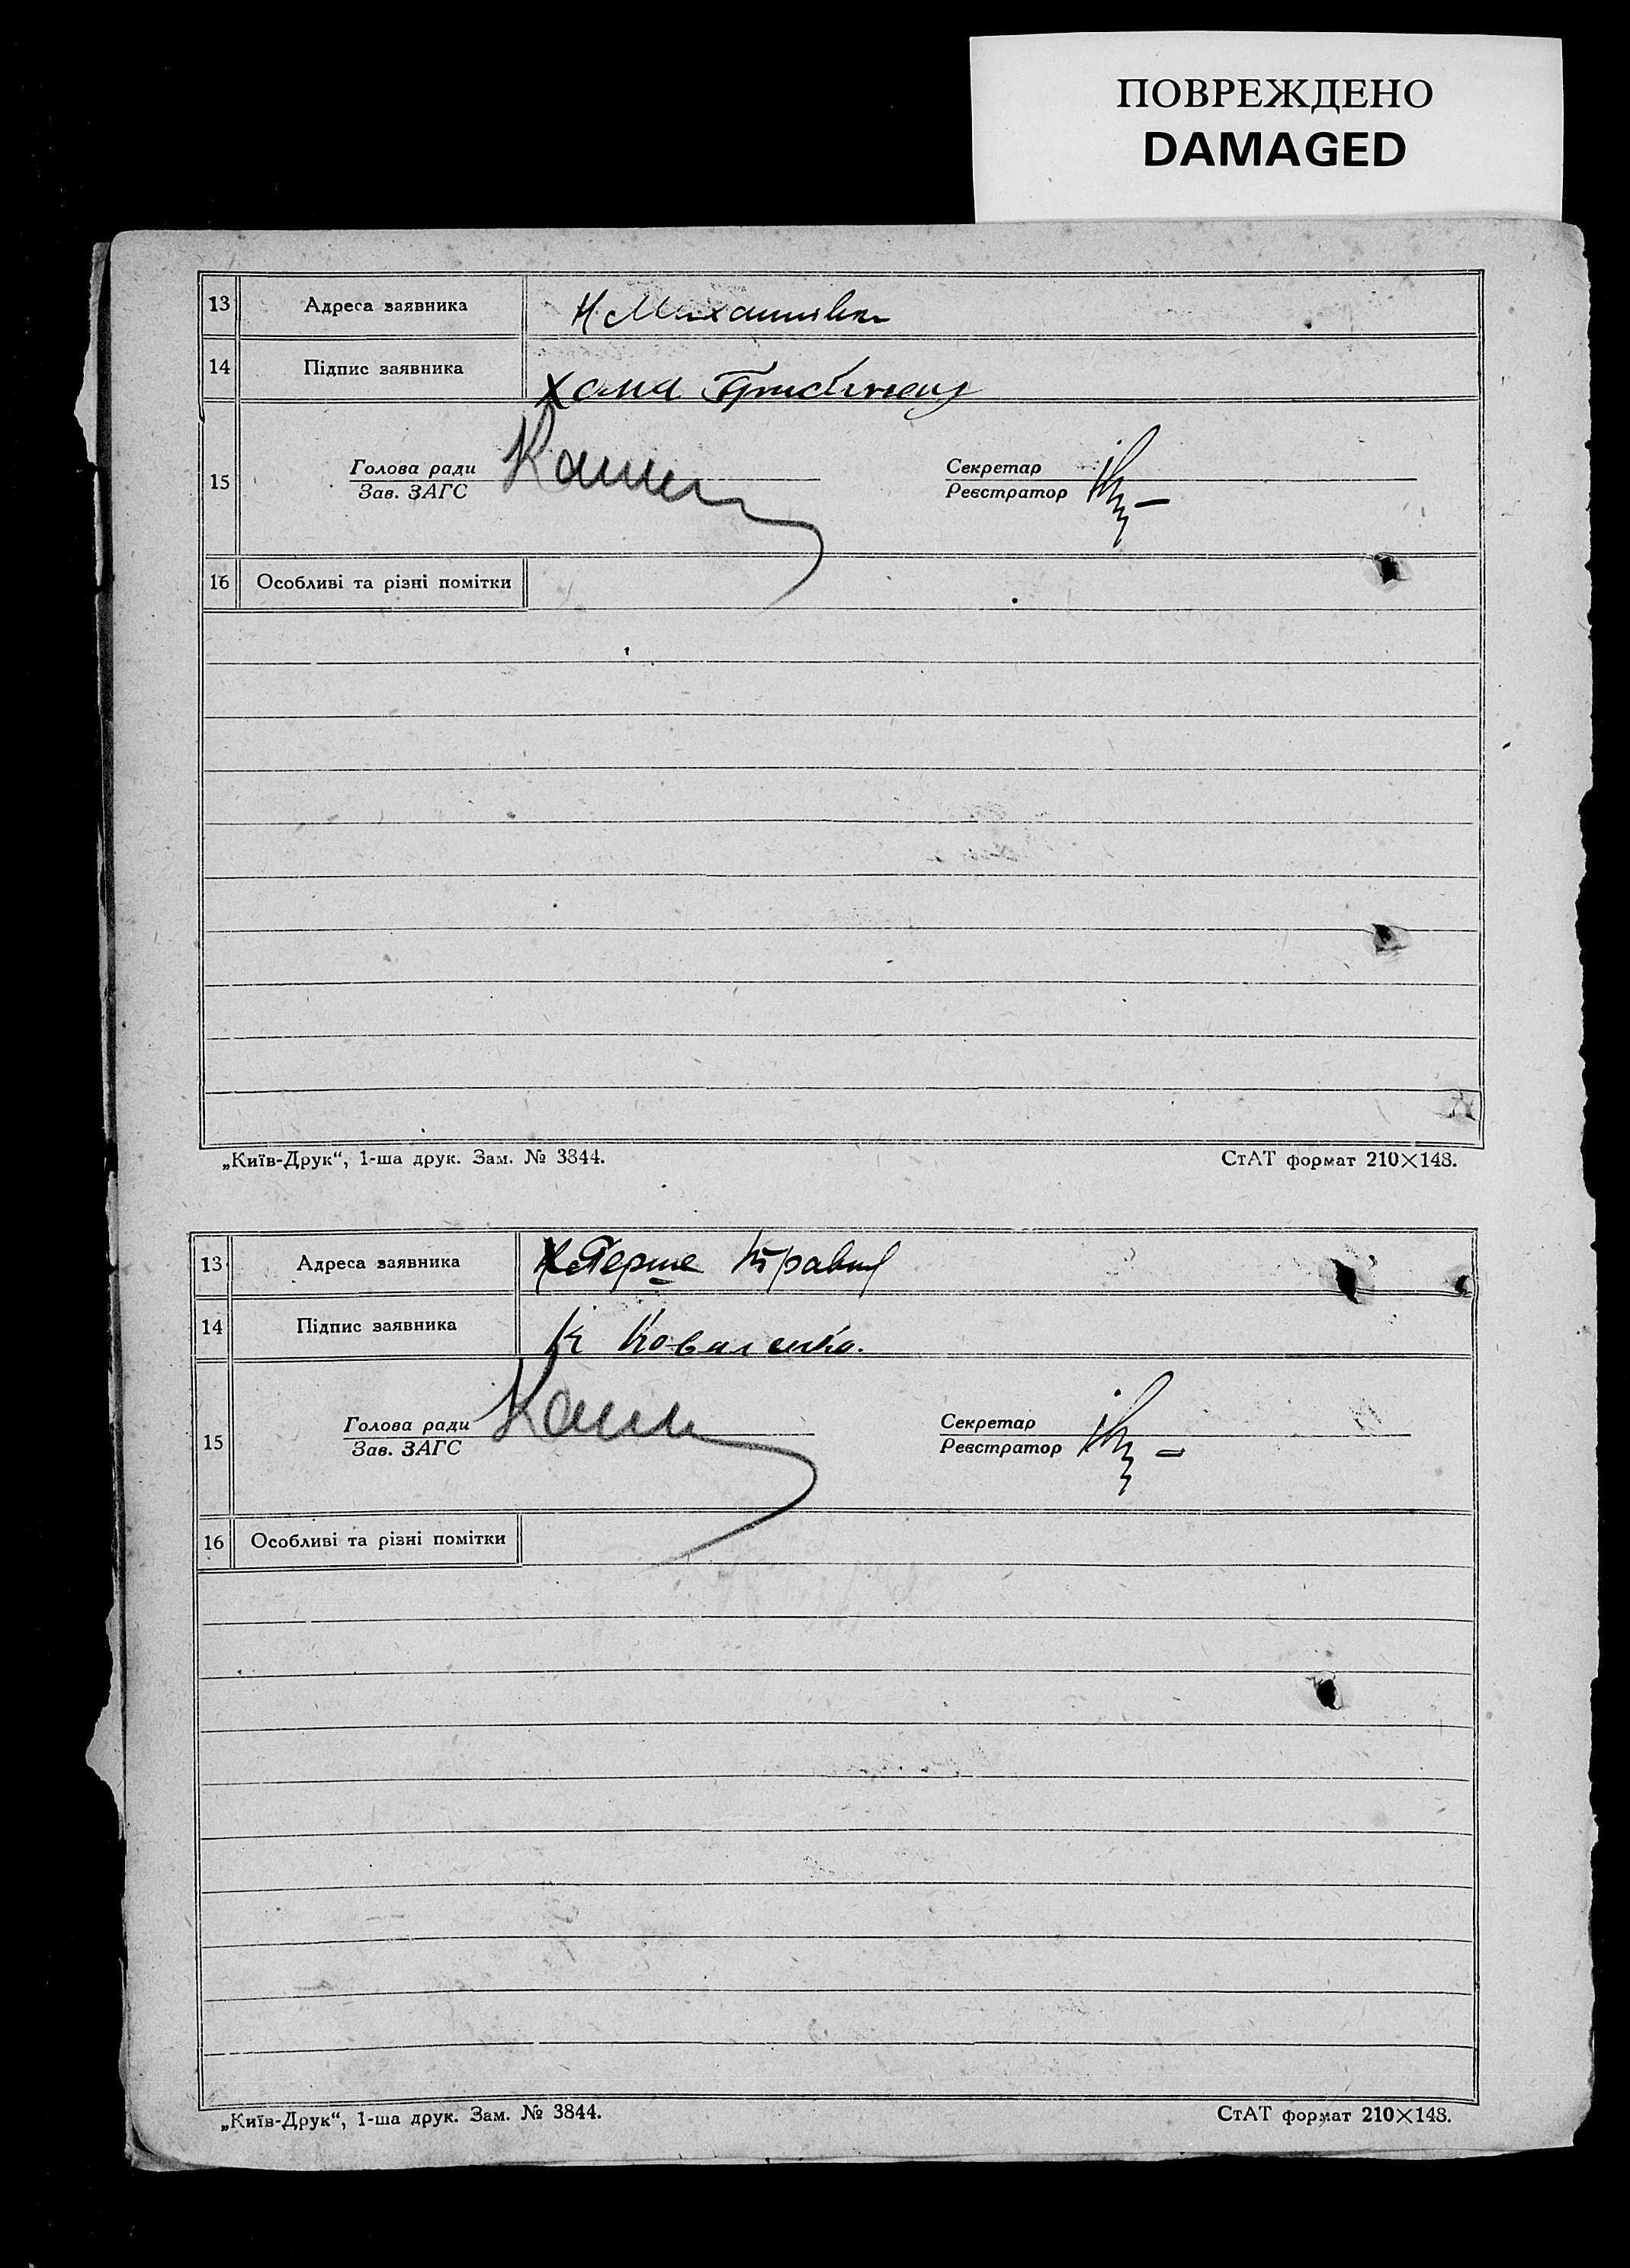 ПОВРЕЖДЕНО
DAMAGED
13 Адреса заявника Н Михайлівка
14 Підпис заявника Хома
15 Голова ради Секретар
Зав. ЗАГС Реєстратор
16 Особливі та різні помітки
„Київ-Друк“, 1-ша друк. Зам. № 3844. СтАТ формат 210×148.
13 Адреса заявника Перше Травня
14 Підпис заявника К Коваленко.
15 Голова ради Секретар
Зав. ЗАГС Реєстратор
16 Особливі та різні помітки
„Київ-Друк“, 1-ша друк. Зам. № 3844. СтАТ формат 210×148.